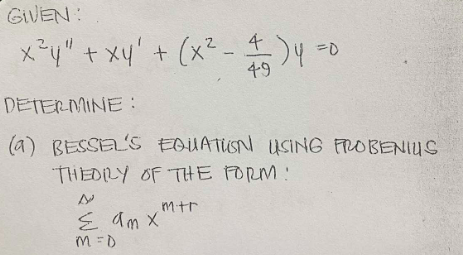 GIVEN:
x²y" + xy' + (x² - 4/49)y = 0
DETERMINE:
(a) BESSEL'S EQUATION USING FROBENIUS
THEORY OF THE FORM:
∞
Σ am x^m+r
m=0